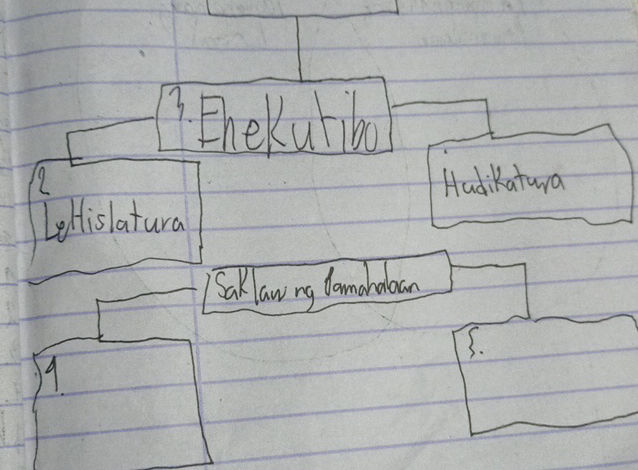 3. Ehekutibo
2
LeHislatura
Hudikatura
Saklaw ng Pamahalaan
4.
5.